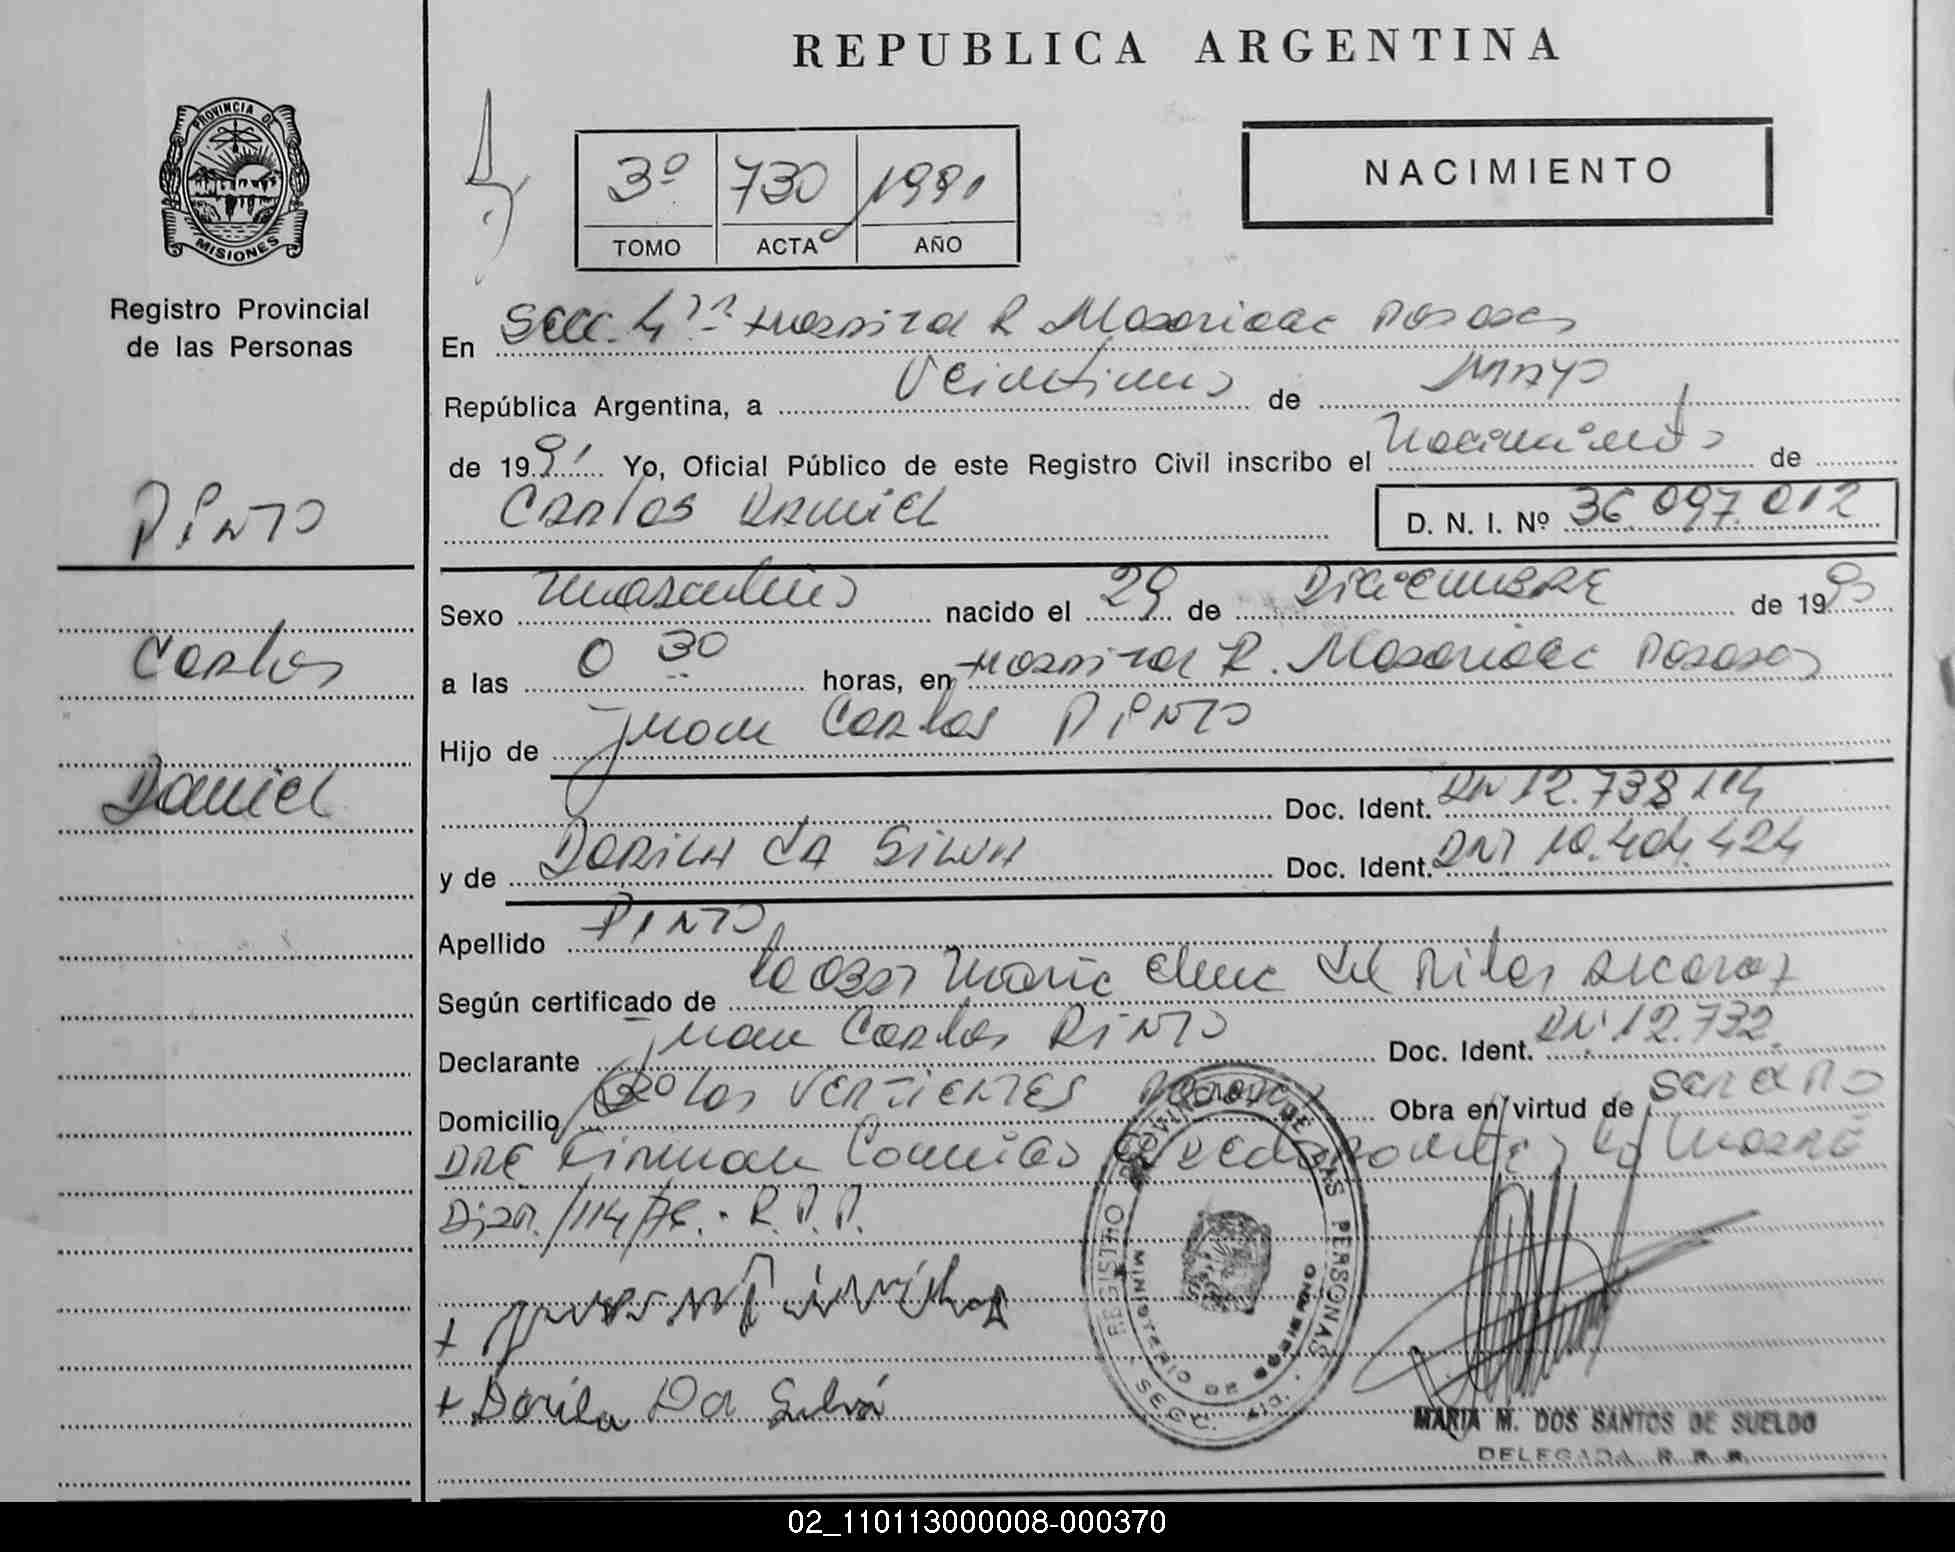 REPUBLICA ARGENTINA
PROVINCIA DE
MISIONES
Registro Provincial
de las Personas
PINTO
Carlos
Daniel
3º 730 1991
TOMO ACTA AÑO
NACIMIENTO
En Secc. 4ta Hospital R. Madariaga Posadas
República Argentina, a Veintiuno de Mayo
de 1991 Yo, Oficial Público de este Registro Civil inscribo el Nacimiento de
Carlos Daniel
D. N. I. Nº 36.097.012
Sexo masculino nacido el 29 de Diciembre de 1990
a las 0 30 horas, en Hospital R. Madariaga Posadas
Hijo de Juan Carlos PINTO
Doc. Ident. DNI 12.738.114
y de Dorila Da Silva Doc. Ident. DNI 10.404.424
Apellido PINTO
Según certificado de la Obst Maria Elena del Pilar Alcaraz
Declarante Juan Carlos Pinto Doc. Ident. DNI 12.732.
Domicilio Bº las Vertientes Posadas Obra en virtud de ser el P
Dre Firman Disp. /114/ R.P.P.
+
+ Dorila Da Silva
REGISTRO PROVINCIAL DE LAS PERSONAS
MINISTERIO DE GOBIERNO
MARIA M. DOS SANTOS DE SUELDO
DELEGADA R. P. P.
02_110113000008-000370